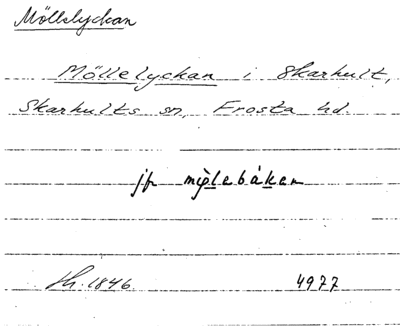 Möllelyckan
Möllelyckan i Skarhult,
Skarhults sn, Frosta hd.
jfr mølebåken
1846. 4977